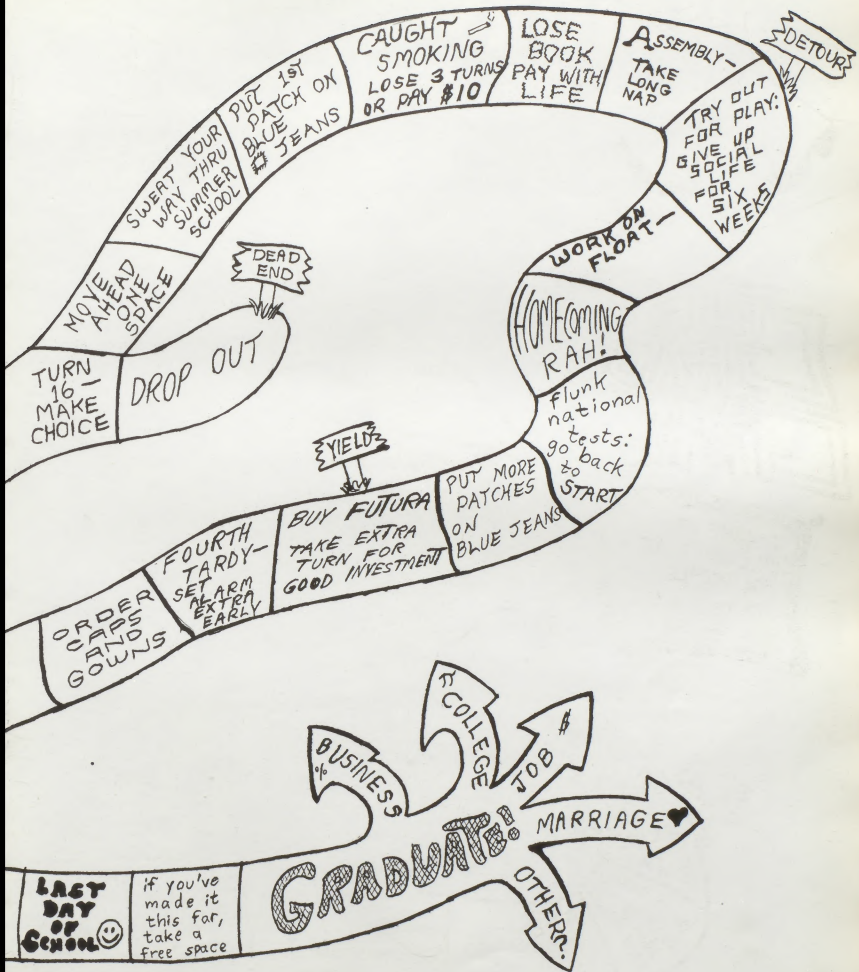 TURN
16 —
MAKE
CHOICE
DROP OUT
DEAD
END
MOVE
AHEAD
ONE
SPACE
SWEAT YOUR
WAY THRU
SUMMER
SCHOOL
PUT 1ST
PATCH ON
BLUE
JEANS
CAUGHT
SMOKING
LOSE 3 TURNS
OR PAY $10
LOSE
BOOK
PAY WITH
LIFE
ASSEMBLY—
TAKE
LONG
NAP
DETOUR
TRY OUT
FOR PLAY:
GIVE UP
SOCIAL
LIFE
FOR
SIX
WEEKS
WORK ON
FLOAT—
HOMECOMING
RAH!
flunk
national
tests:
go back
to
START
PUT MORE
PATCHES
ON
BLUE JEANS
YIELD
BUY FUTURA
TAKE EXTRA
TURN FOR
GOOD INVESTMENT
FOURTH
TARDY—
SET
ALARM
EXTRA
EARLY
ORDER
CAPS
AND
GOWNS
LAST
DAY
OF
SCHOOL
if you've
made it
this far,
take a
free space
GRADUATE!
BUSINESS
%
π COLLEGE
JOB $
MARRIAGE
OTHER?